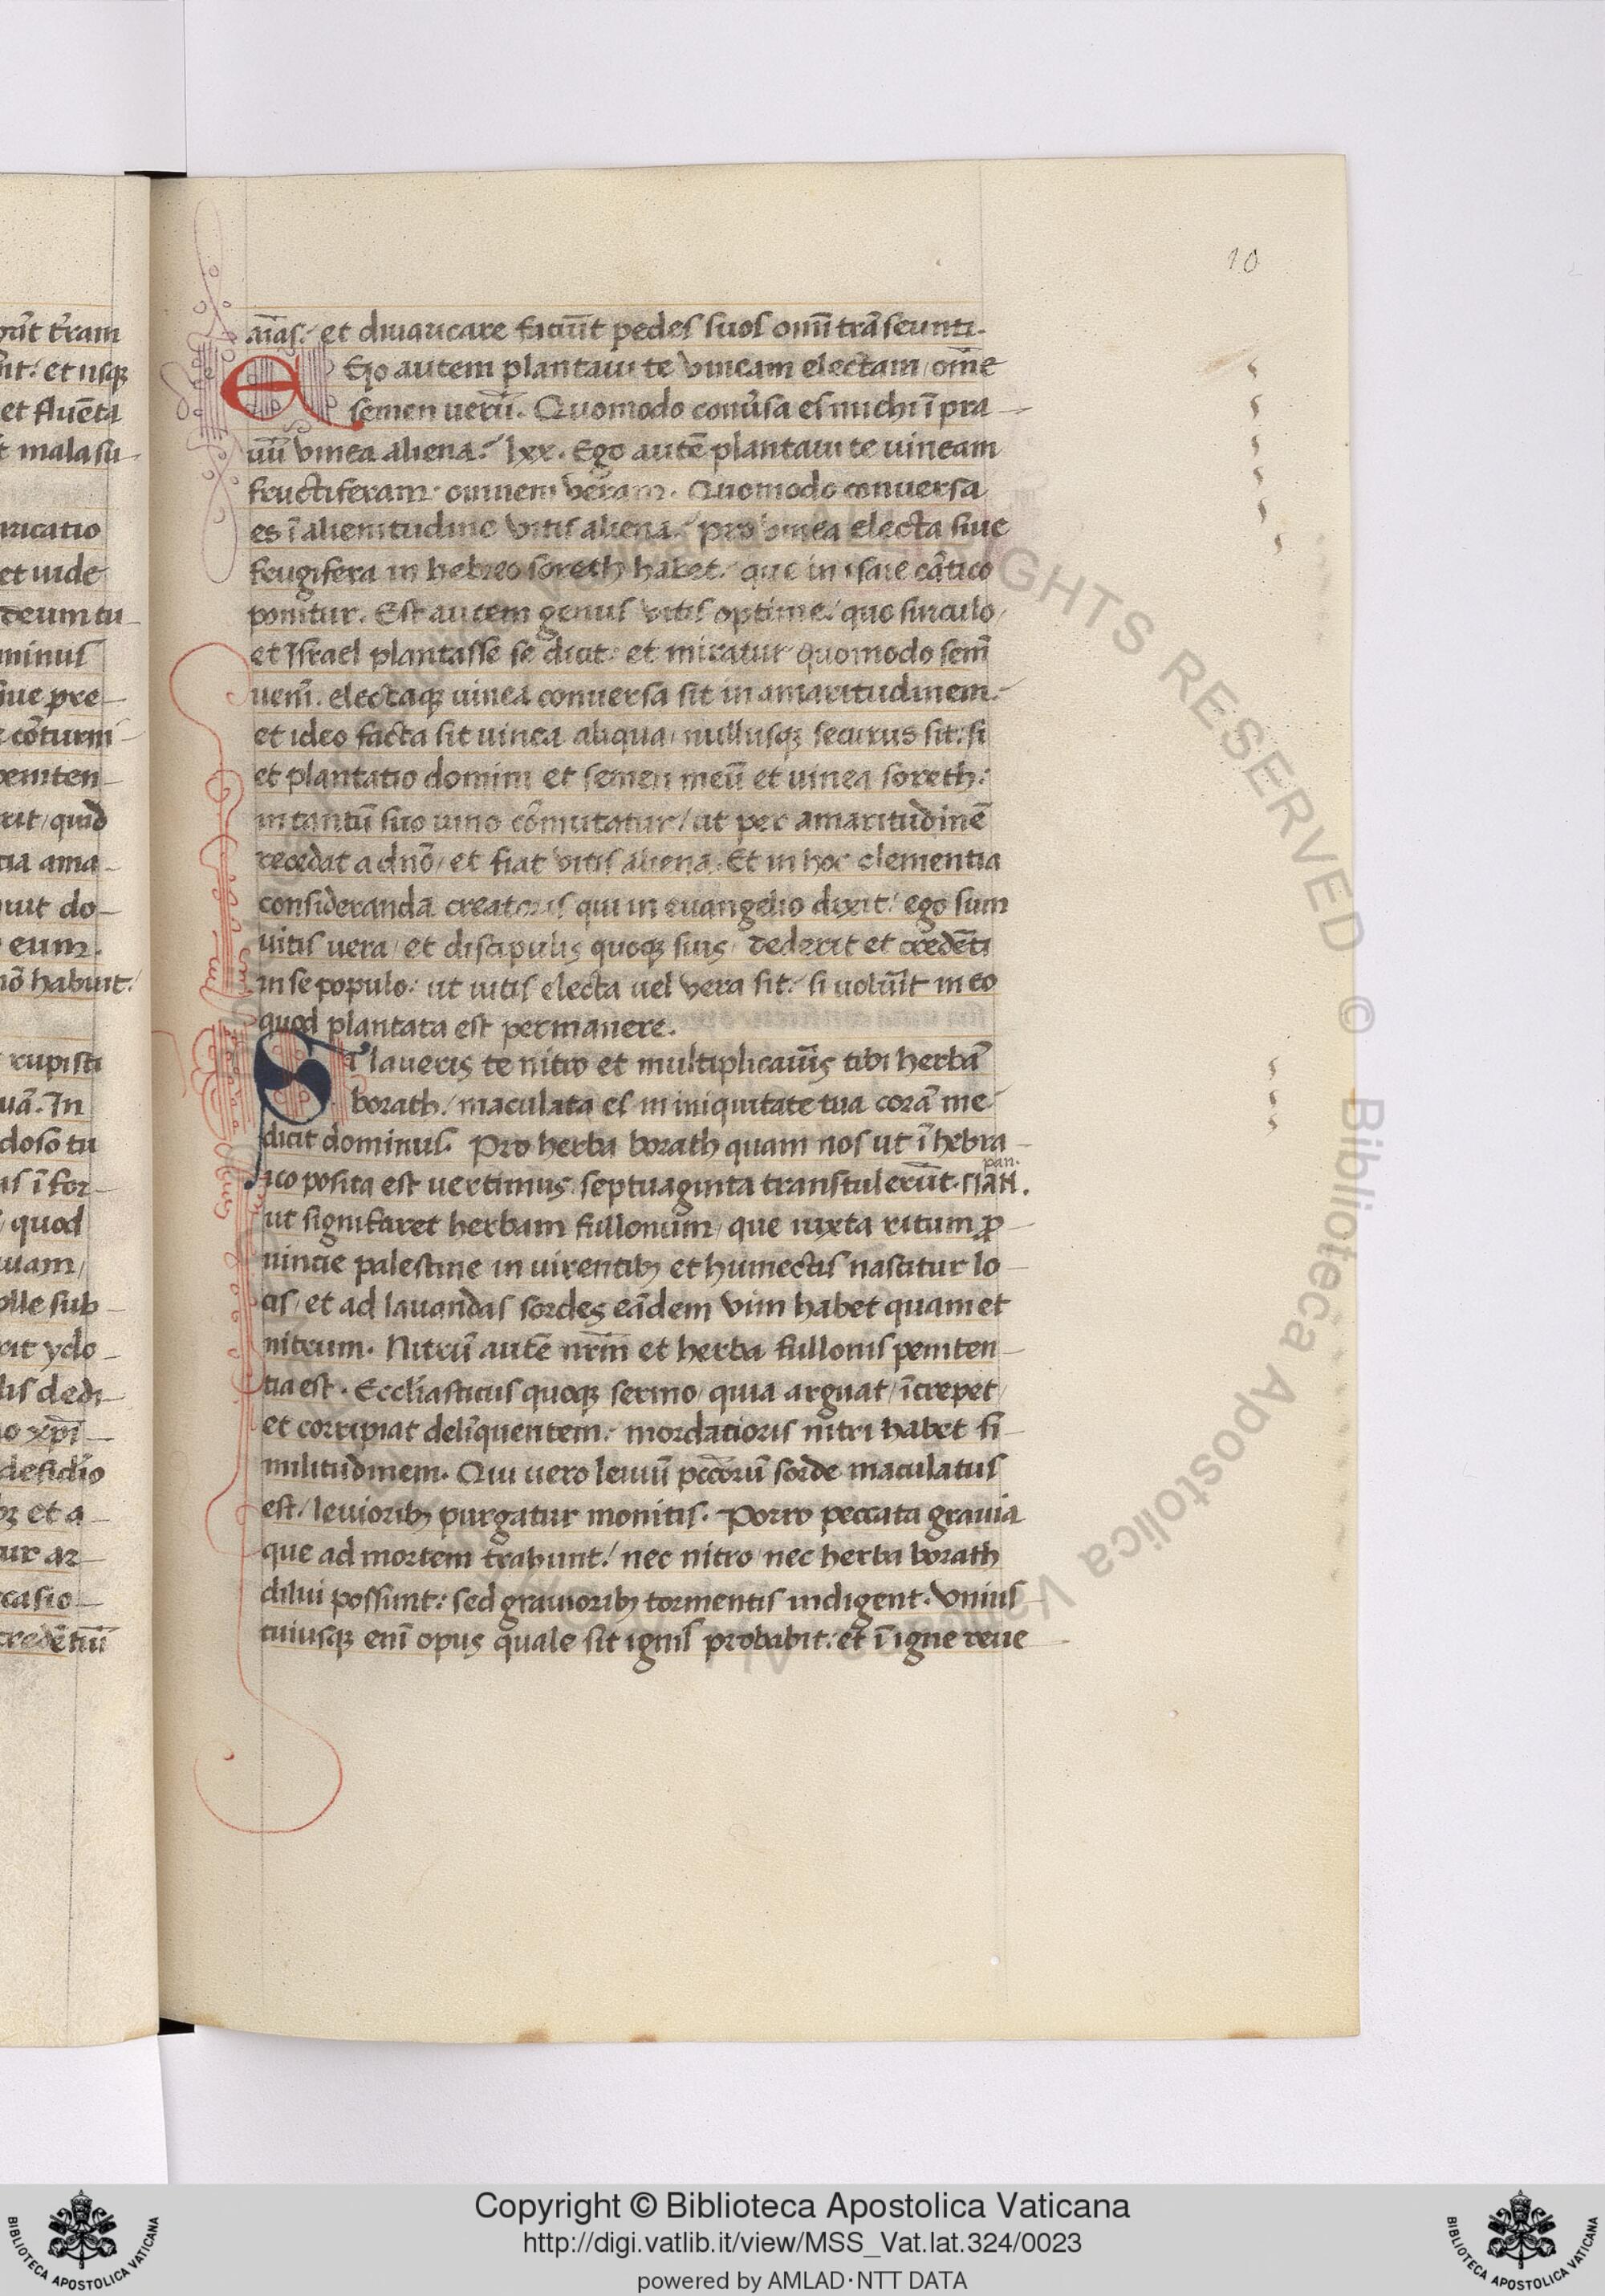 10
orūt t'ram
īt: et usq̢
et fluēta
t mala su-
ricatio
et uide
deum tu-
minus
siue pre-
cōturni-
peniten-
rit/ quid
tia ama-
uit do-
eum.
nō habuit:
rupisti
uā. In
doso tu
us ī for-
quod
uam/
olle sub-
rit ydo-
lis dedi-
o xpī-
desidio
et a-
ur ar-
casio-
credētiū
aīas: et diuaricare faciūt pedes suos omī trāseunti.
Ego autem plantaui te vineam electam/ om̄e
semen uerū. Quomodo conu'sa es michi ī pra-
uū vinea aliena? lxx. Ego autē plantaui te uineam
fructiferam: omnem veram. Quomodo conuersa
es ī alienitudine vitis aliena? pro vinea electa siue
frugifera in hebreo soreth habet: que in isaie cātico
ponitur. Est autem genus vitis optime: quo surculo/
et Israel plantasse se dicit: et miratur quomodo sem̄
uerū. electaq̢ uinea conuersa sit in amaritudinem:-
et ideo facta sit uinea aliqua/ nullusq̢ securus sit: si
et plantatio domini et semen meū et uinea soreth:
in tantū suo uino cōmutatur/ ut per amaritudinē
recedat a dnō/ et fiat vitis aliena. Et in hoc clementia
consideranda creatoris qui in euangelio dixit: ego sum
uitis uera/ et discipulis quoq̢ suis/ dederit et credēti
in se populo: ut uitis electa uel vera sit: si uolūīt in eo
quod plantata est permanere.
Si laueris te nitro et multiplicaūis tibi herbā
borath/ maculata es in iniquitate tua corā me
dicit dominus. Pro herba borath quam nos ut ī hebra-
ico posita est uertimus: septuaginta transtulerūt.
ut significaret herbam fullonum/ que iuxta ritum ꝓ-
uincie palestine in uirentib̢ et humectis nascitur lo-
cis/ et ad lauandas sordes eādem vim habet quam et
nitrum. Nitrū autē nr̄m et herba fullonis peniten-
tia est. Eccliasticus quoq̢ sermo/ quia arguat/ īcrepet/
et corripiat delīquentem: mordatioris nitri habet si-
militudinem. Qui uero leuiū pccōrū sorde maculatus
est/ leuiorib̢ purgatur monitis. Porro peccata grauia
que ad mortem trahunt: nec nitro/ nec herba borath
dilui possunt: sed grauiorib̢ tormentis indigent. Vnius-
cuiusq̢ enī opus quale sit ignis probabit: et ī igne reue-
© Biblioteca Apostolica Vaticana
RIGHTS RESERVED
Copyright © Biblioteca Apostolica Vaticana
http://digi.vatlib.it/view/MSS_Vat.lat.324/0023
powered by AMLAD·NTT DATA
BIBLIOTECA APOSTOLICA VATICANA
BIBLIOTECA APOSTOLICA VATICANA